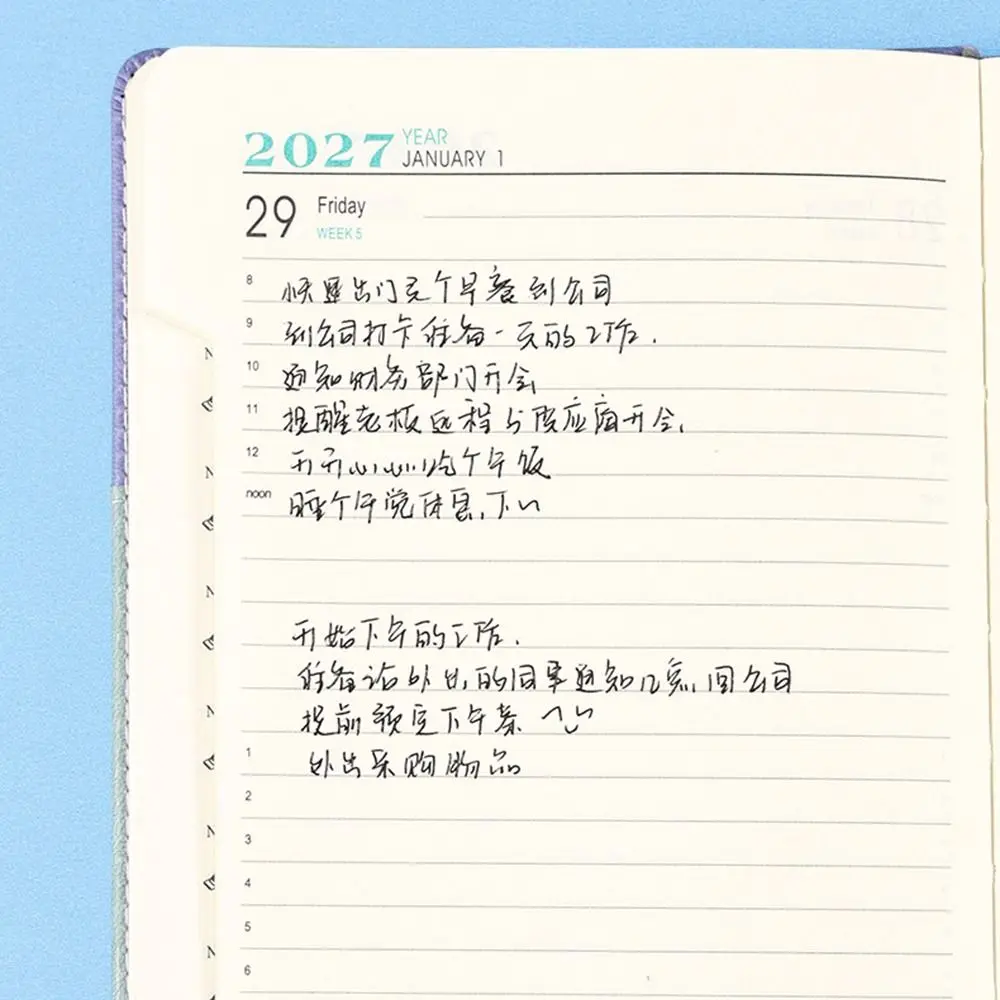 2027 YEAR
JANUARY 1
29 Friday
WEEK 5
8 出门买个早餐到公司
9 到公司打卡准备一天的工作.
10 通知财务部门开会
11 提醒老板远程与供应商开会,
12 开开心心吃个午饭
noon 睡个午觉休息,下
开始下午的工作.
准备让外出的同事通知回公司
提前预定下午茶
1 外出采购物品
2
3
4
5
6